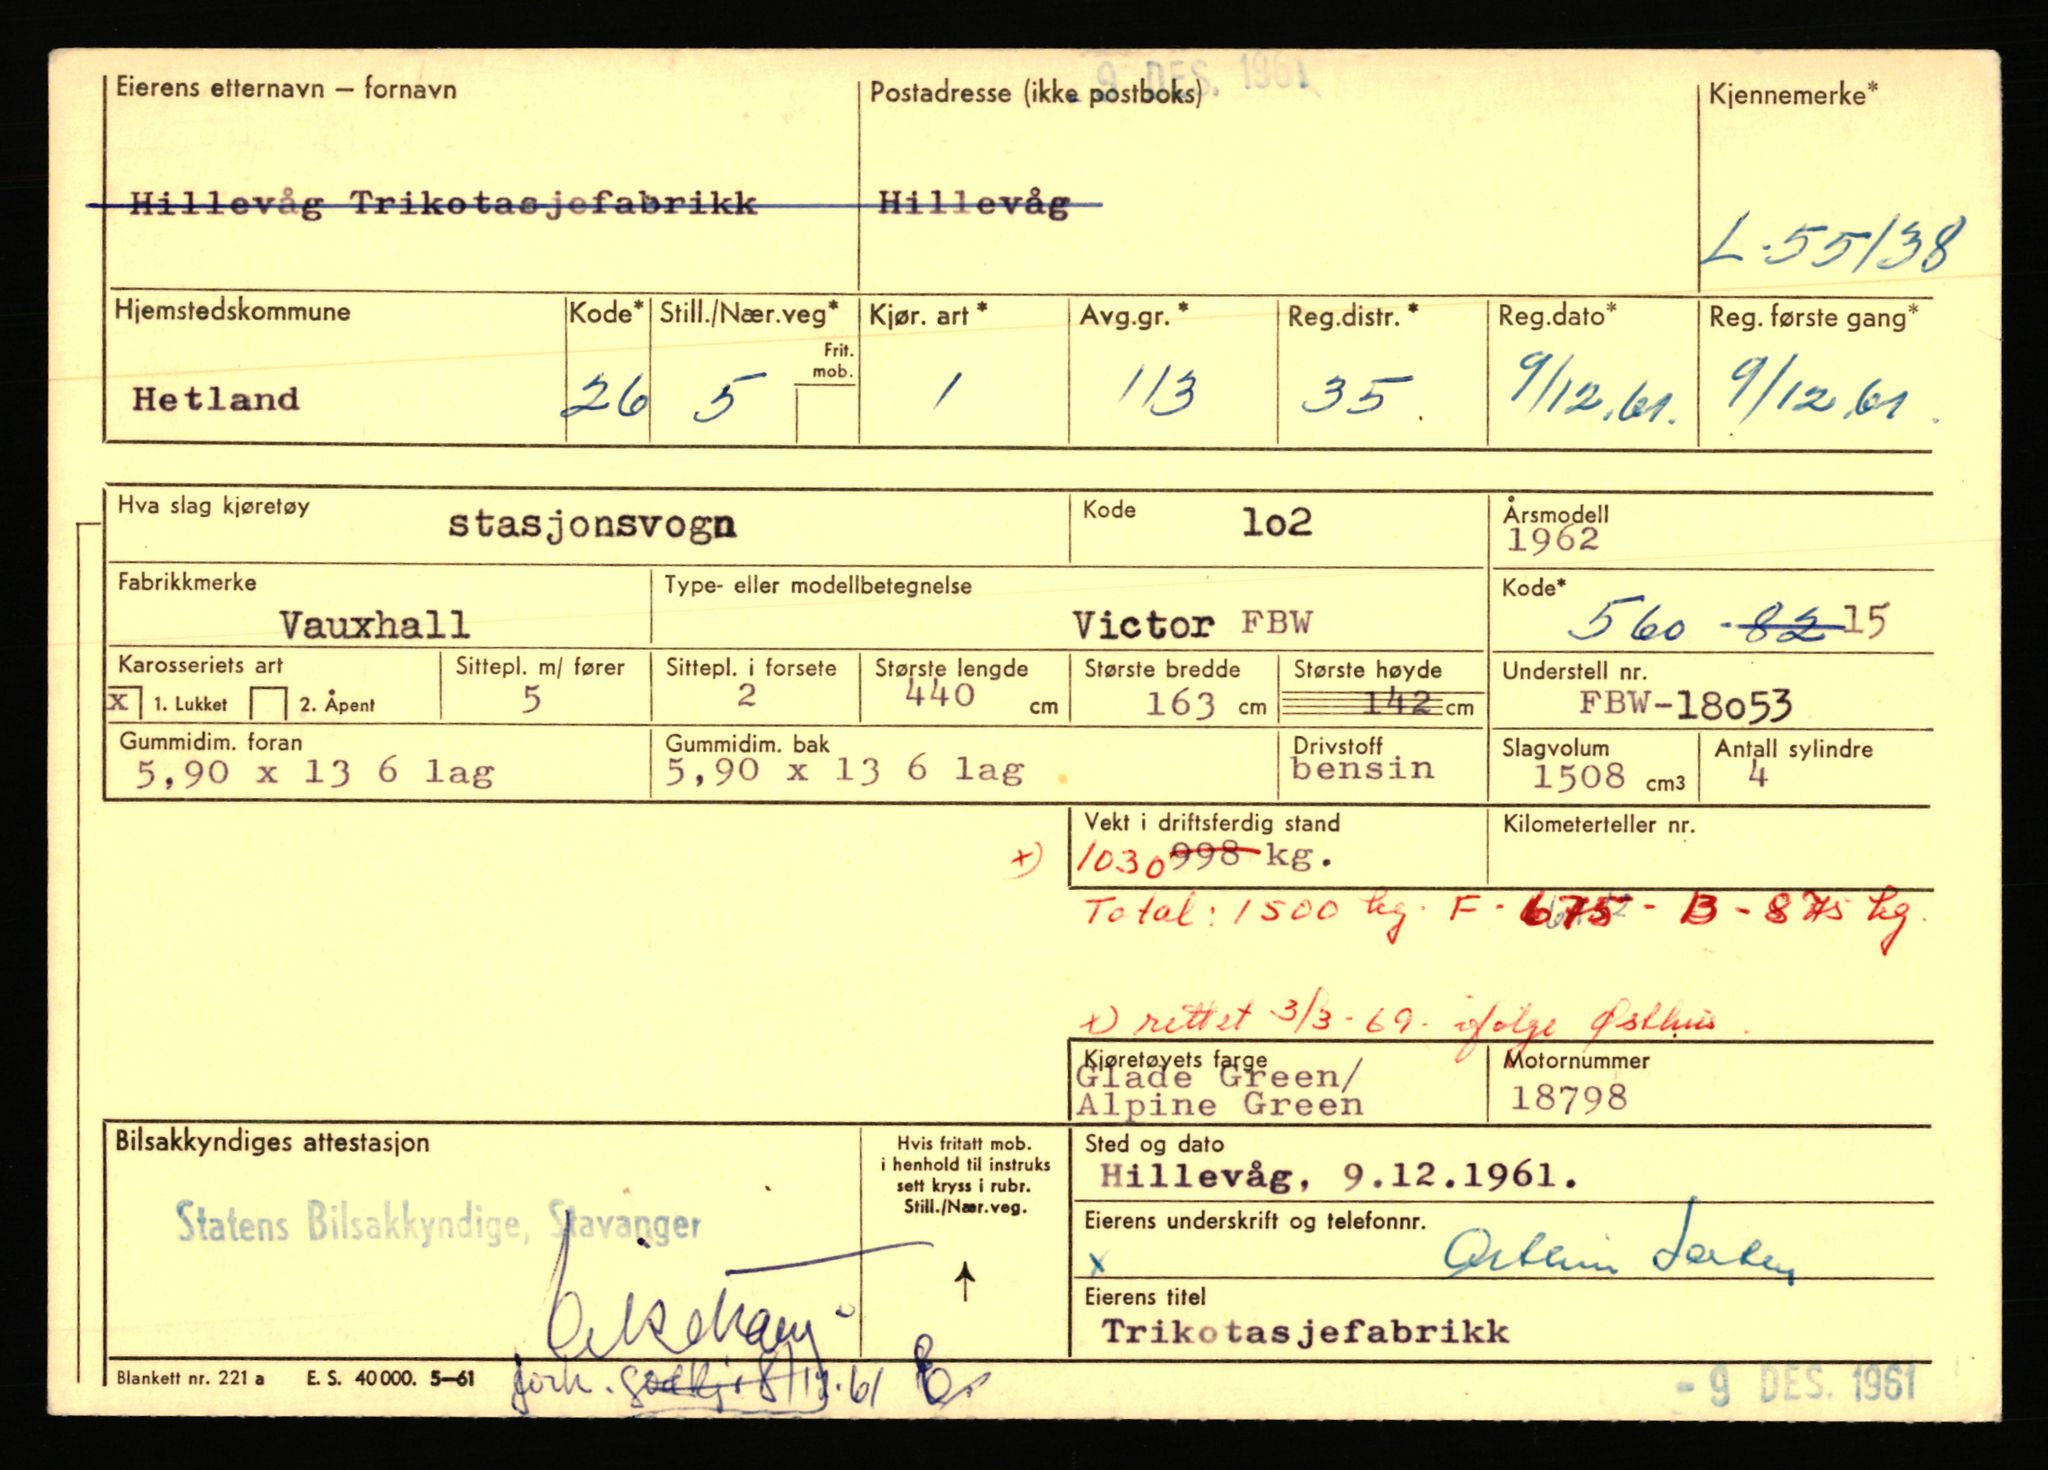 - 9 DES. 1961
Eierens etternavn – fornavn Postadresse (ikke postboks) Kjennemerke*
Hillevåg Trikotasjefabrikk Hillevåg
L-55138
Hjemstedskommune Kode* Still./Nær.veg* Kjør. art* Avg.gr.* Reg.distr.* Reg.dato* Reg. første gang*
Frit. mob.
Hetland 26 5 1 113 35 9/12.61. 9/12.61.
Hva slag kjøretøy stasjonsvogn Kode 1o2 Årsmodell
1962
Fabrikkmerke Type- eller modellbetegnelse Kode*
Vauxhall Victor FBW 560 - 82 15
Karosseriets art Sittepl. m/ fører Sittepl. i forsete Største lengde Største bredde Største høyde Understell nr.
x 1. Lukket 2. Åpent 5 2 440 cm 163 cm 142 cm FBW-18o53
Gummidim. foran Gummidim. bak Drivstoff Slagvolum Antall sylindre
5,90 x 13 6 lag 5,90 x 13 6 lag bensin 1508 cm3 4
Vekt i driftsferdig stand Kilometerteller nr.
x) 1030 998 kg.
Total: 1500 kg. F - 675 - B - 875 kg.
x) rettet 3/3-69. ifølge Østhus.
Kjøretøyets farge Motornummer
Glade Green/
Alpine Green 18798
Bilsakkyndiges attestasjon Hvis fritatt mob. i henhold til instruks sett kryss i rubr. Still./Nær.veg. Sted og dato
Hillevåg, 9.12.1961.
Statens Bilsakkyndige, Stavanger Eierens underskrift og telefonnr.
x
Eierens titel
Trikotasjefabrikk
Blankett nr. 221 a E. S. 40000. 5–61 forh. godkj. 8/12.61
- 9 DES. 1961